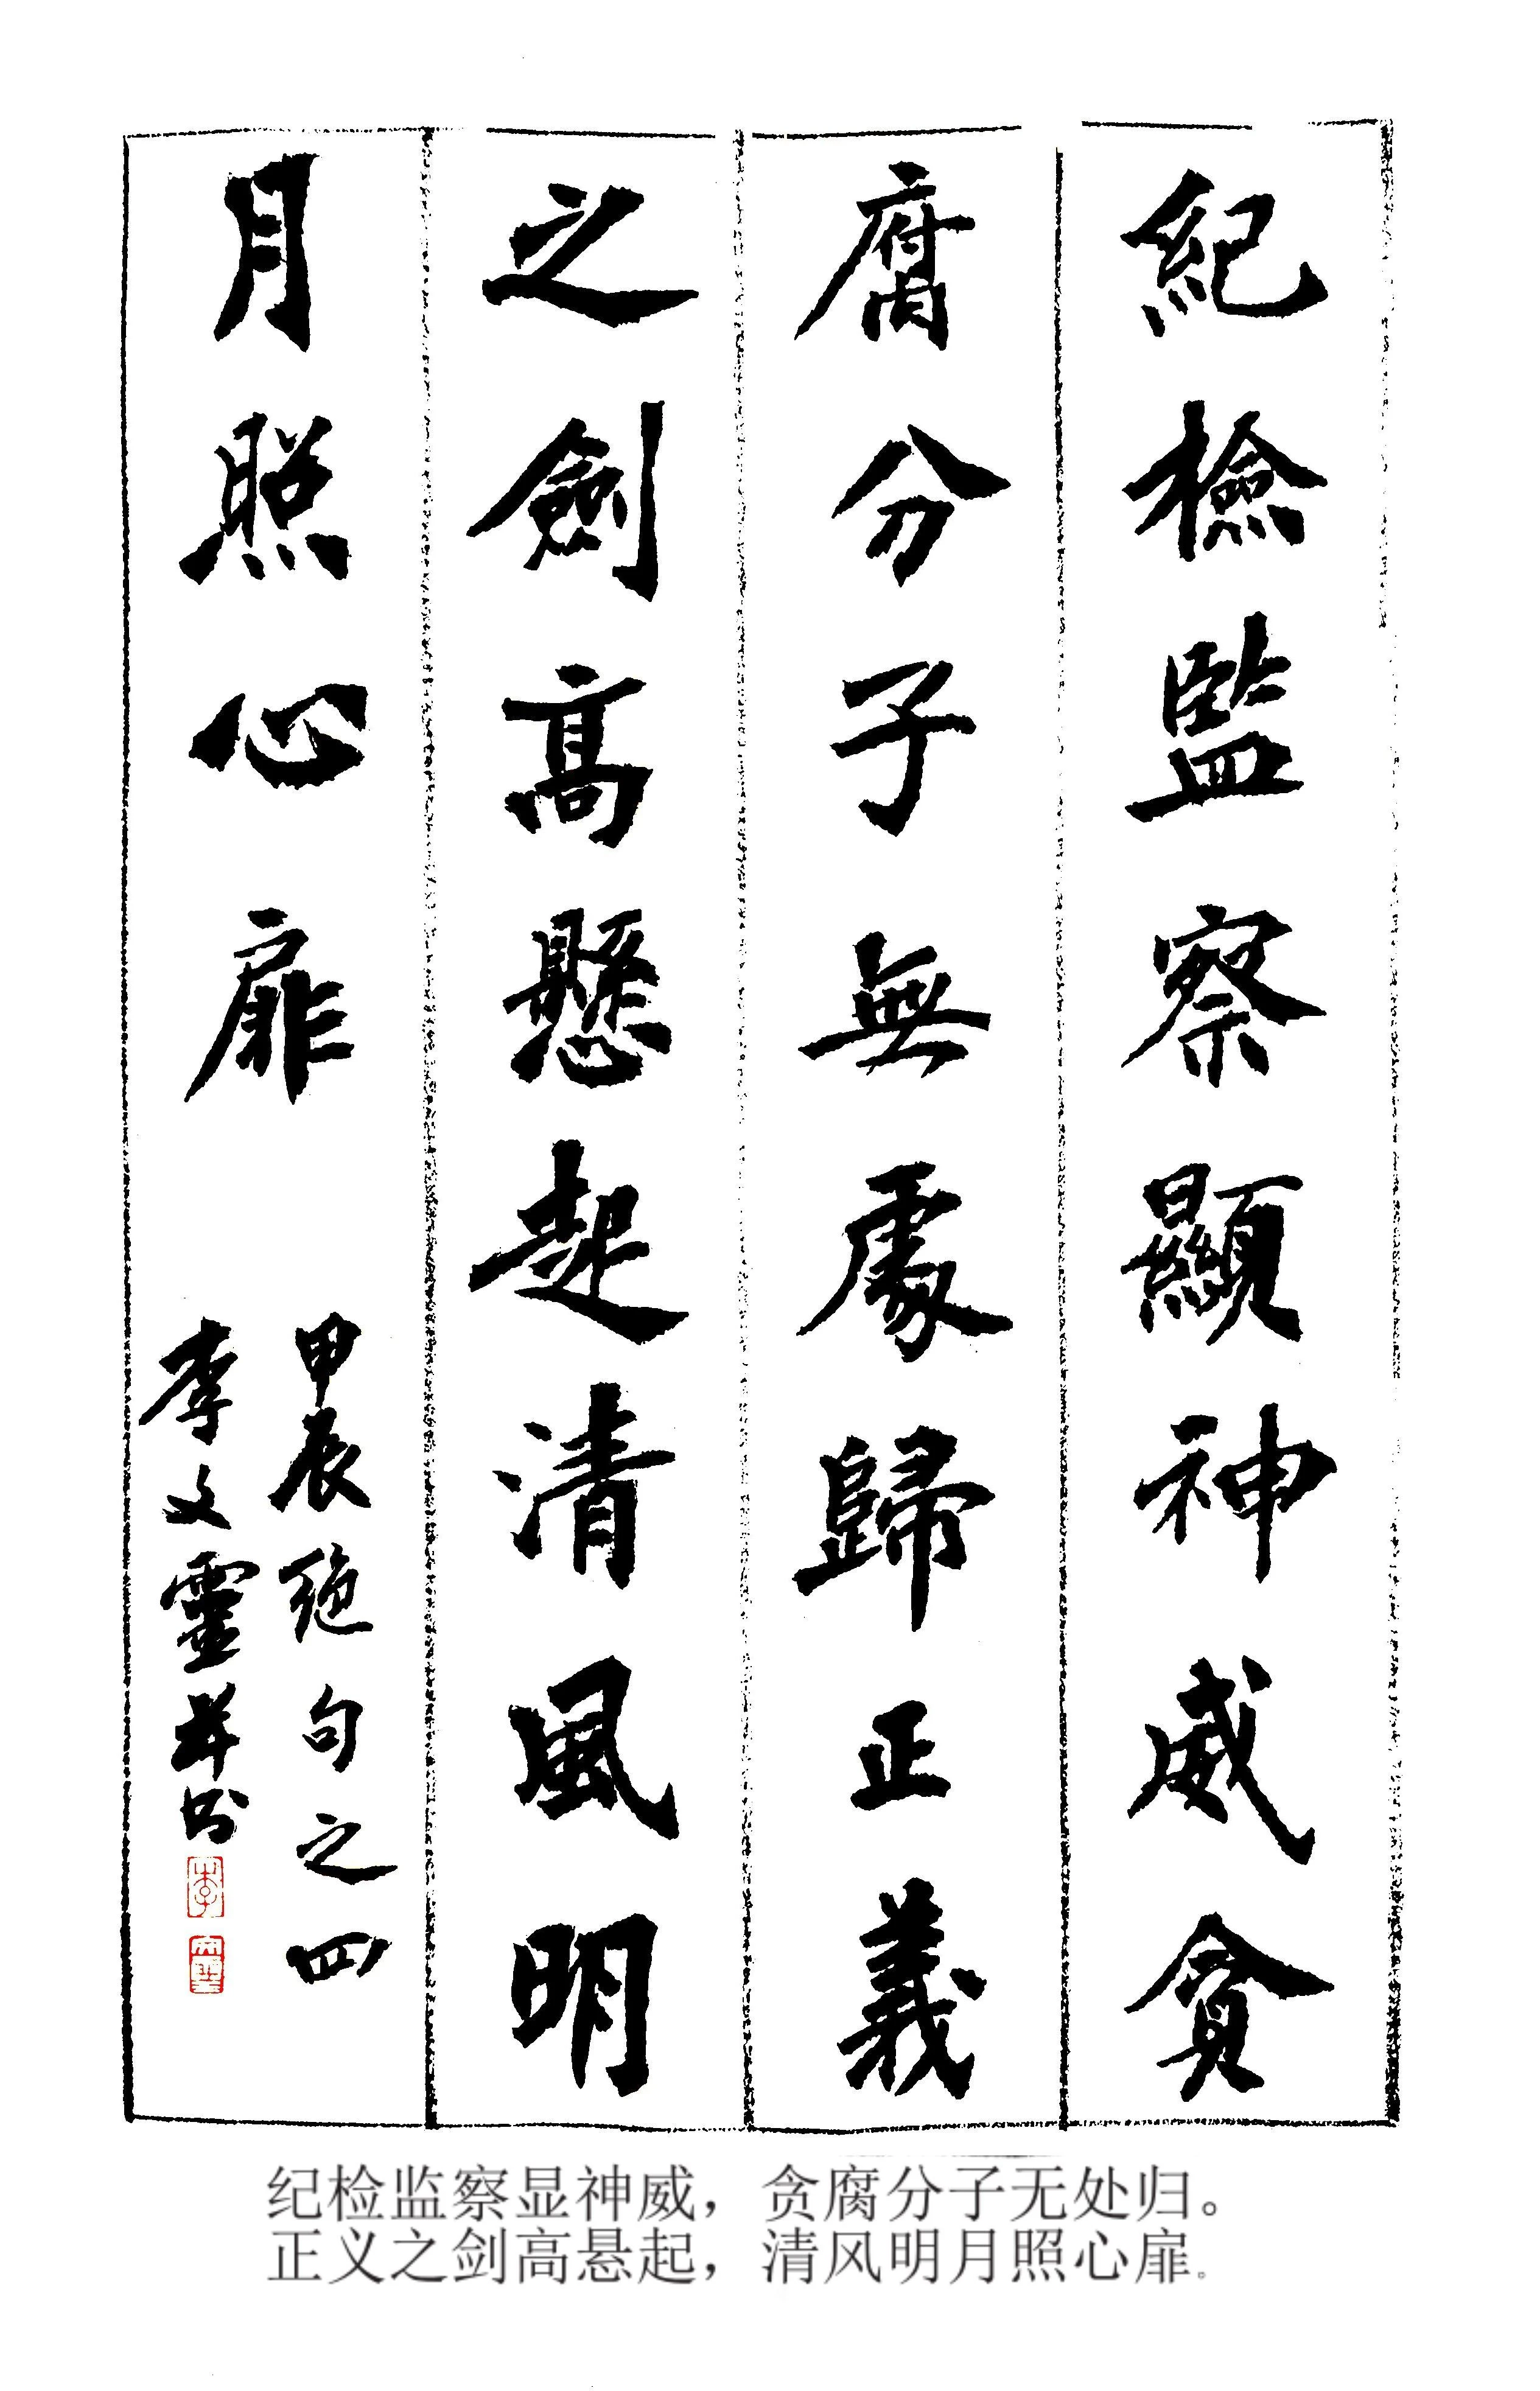 紀檢監察顯神威貪
腐分子無處歸正義
之劍高懸起清風明
月照心扉
甲辰絕句之四
李文靈并书
李
文靈
纪检监察显神威，贪腐分子无处归。
正义之剑高悬起，清风明月照心扉。